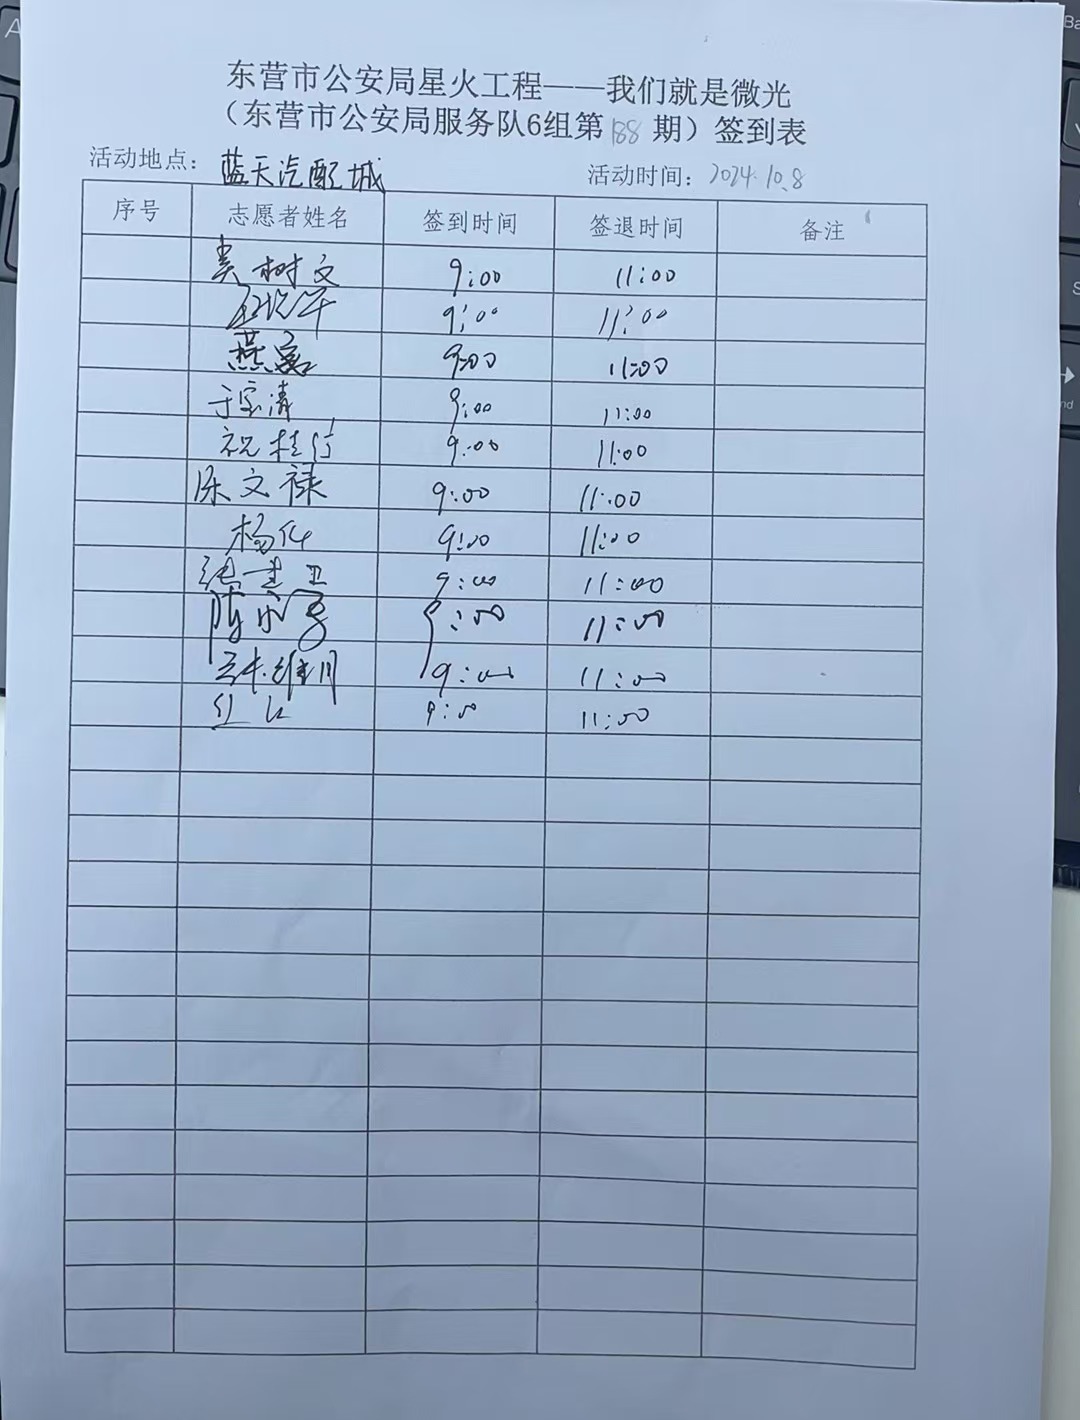 东营市公安局星火工程——我们就是微光
（东营市公安局服务队6组第188期）签到表
活动地点：蓝天汽配城 活动时间：2024.10.8
序号 志愿者姓名 签到时间 签退时间 备注
树文 9:00 11:00
9:00 11:00
燕 9:00 11:00
于宗清 9:00 11:00
祝桂 9:00 11:00
陈文禄 9:00 11:00
杨 9:00 11:00
张建卫 9:00 11:00
陈 9:00 11:00
9:00 11:00
9:00 11:00